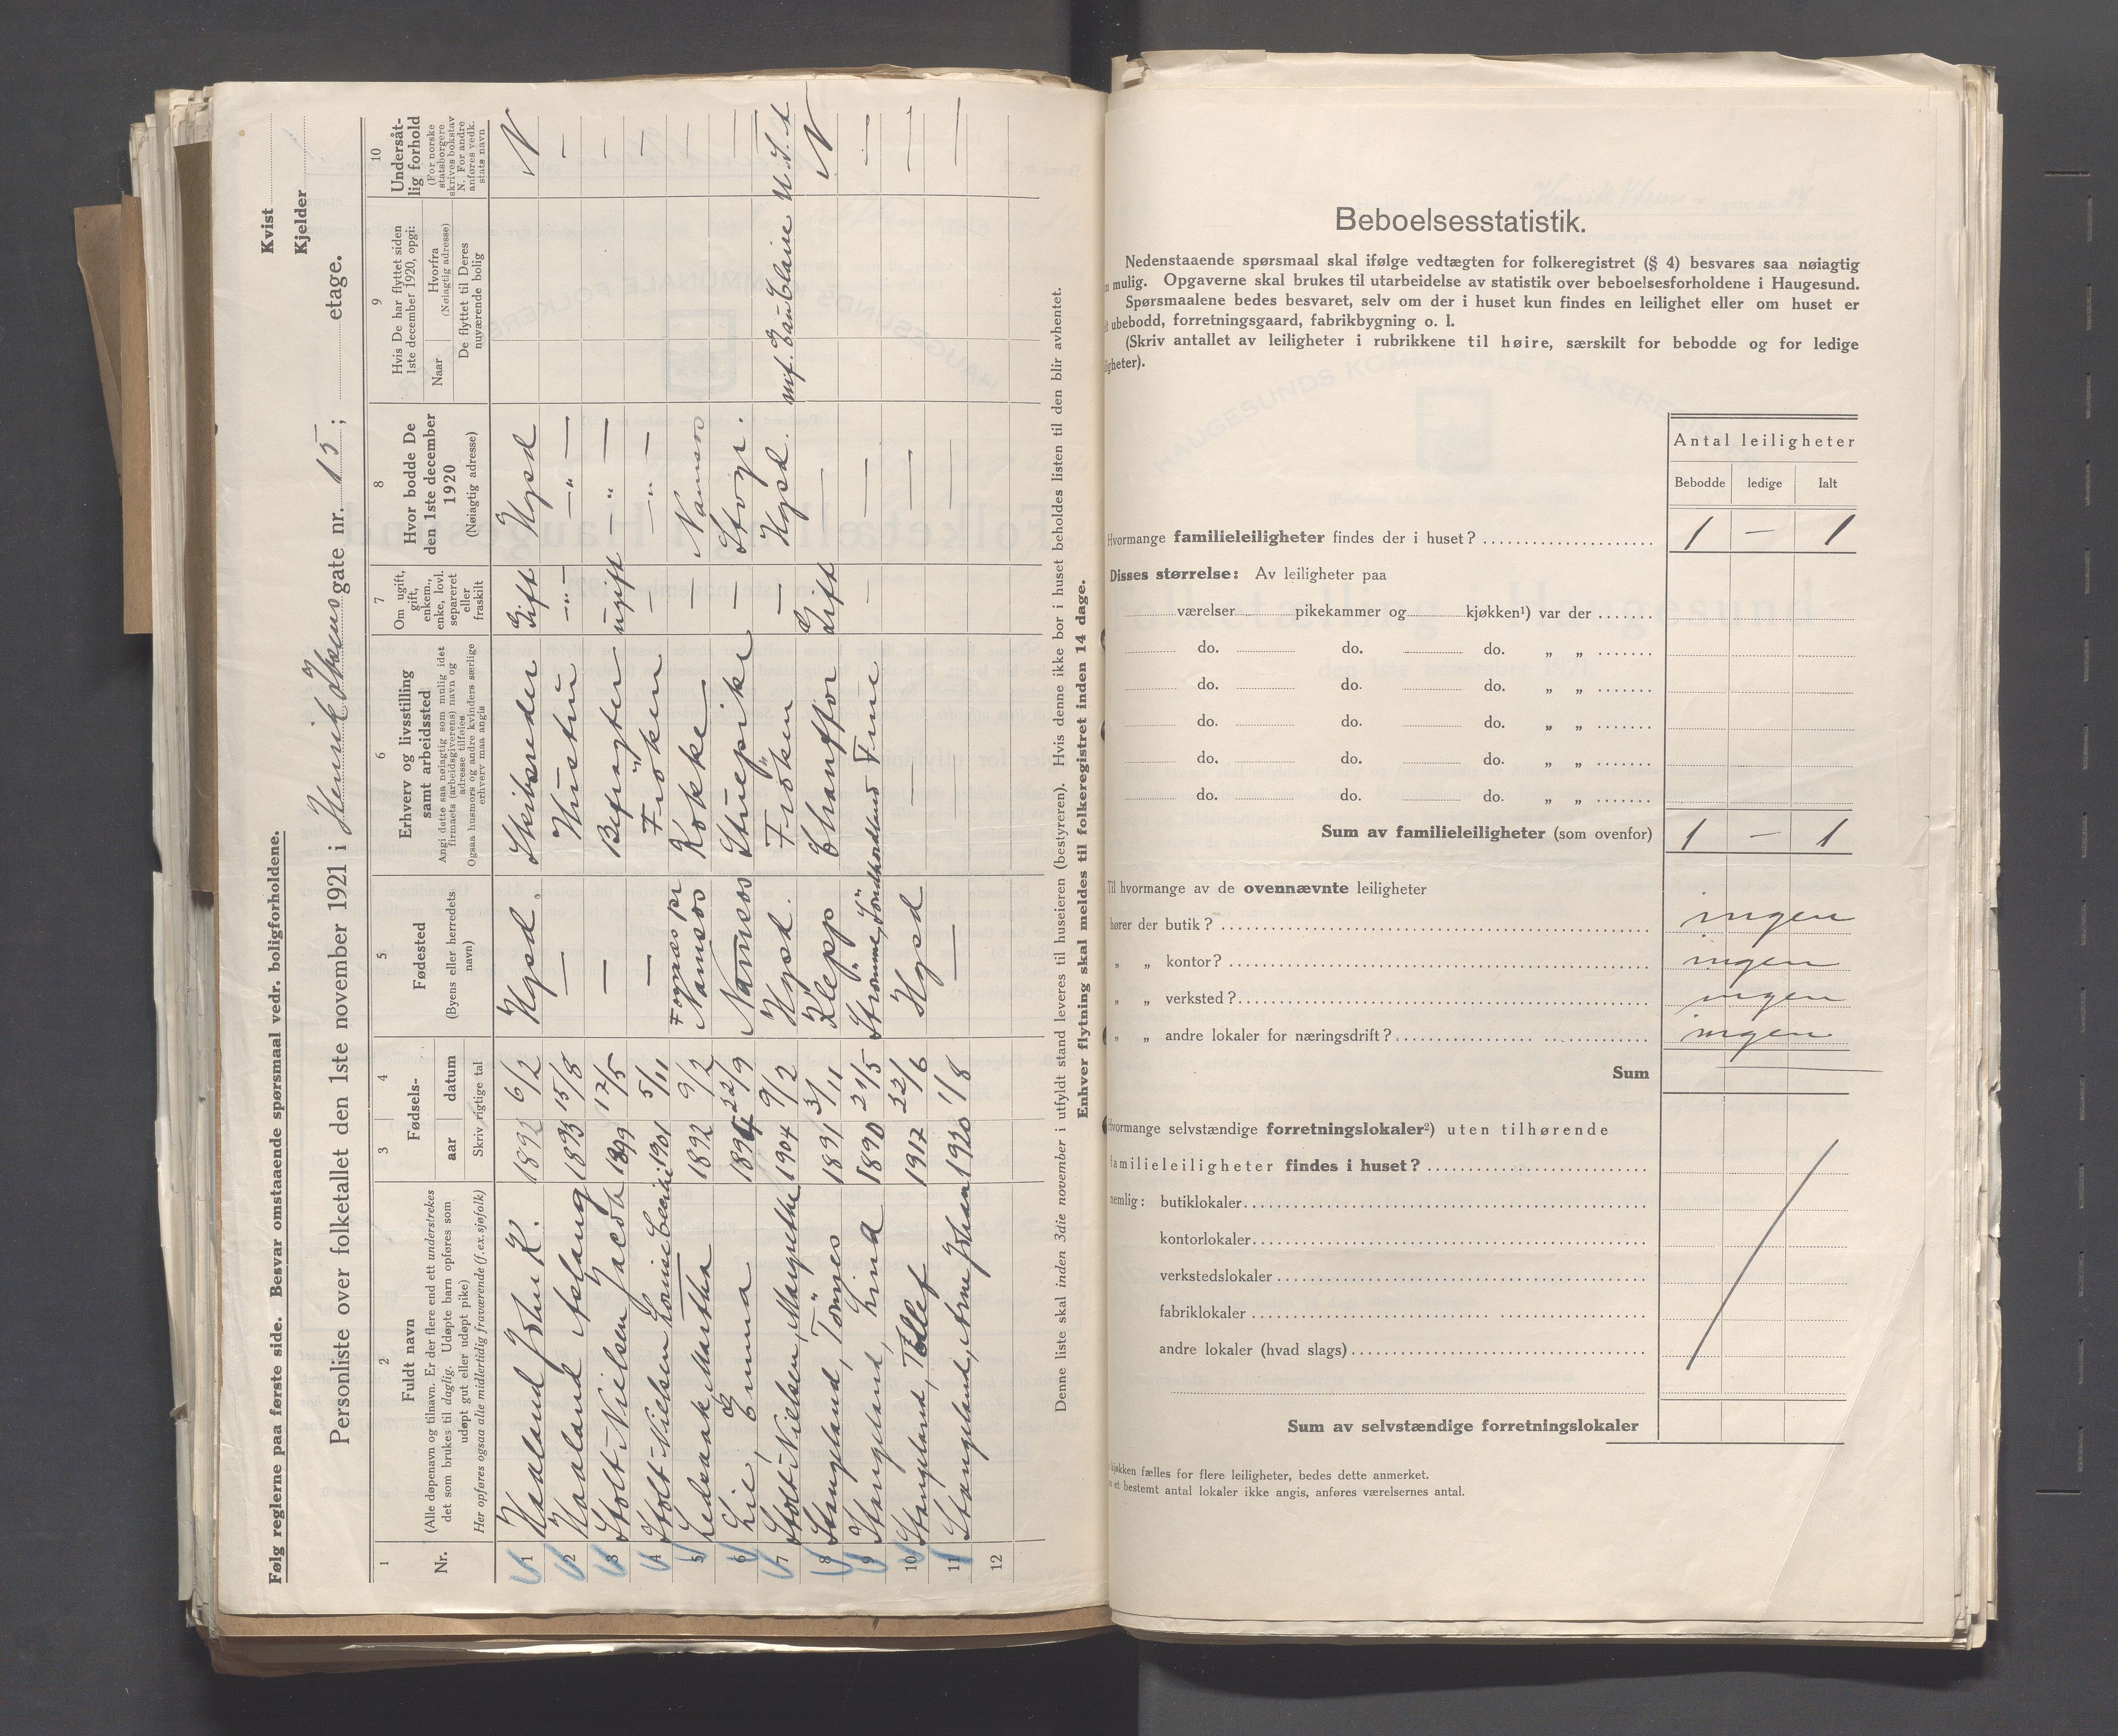 Følg reglerne paa første side. Besvar omstaaende spørsmaal vedr. boligforholdene.
Kvist
Kjelder
Personliste over folketallet den 1ste november 1921 i Henrik Ibsens gate nr. 15; etage.
1 2 3 4 5 6 7 8 9 10
Nr.
Fuldt navn
(Alle døpenavn og tilnavn. Er der flere end ett understrekes
det som brukes til daglig. Udøpte barn opføres som
udøpt gut eller udøpt pike)
Her opføres ogsaa alle midlertidig fraværende (f. ex. sjøfolk)
Fødsels-
aar datum
Skriv rigtige tal
Fødested
(Byens eller herredets
navn)
Erhverv og livsstilling
samt arbeidssted
Angi dette saa nøiagtig som mulig idet
firmaets (arbeidsgiverens) navn og
adresse tilføies
Ogsaa husmors og andre kvinders særlige
erhverv maa angis
Om ugift,
gift,
enkem.,
enke, lovl.
separeret
eller
fraskilt
Hvor bodde De
den 1ste december
1920
(Nøiagtig adresse)
Hvis De har flyttet siden
1ste december 1920, opgi:
Naar
Hvorfra
(Nøiagtig adresse)
De flyttet til Deres
nuværende bolig
Undersåt-
lig forhold
(For norske
statsborgere
skrives bokstav
N. For andre
anføres vedk.
stats navn
1 Haaland John K. 1892 6/2 Hgsd. Skibsreder Gift Hgsd N
2 Haaland Aslaug 1893 15/8 — Hustru —"— —"— —
3 Stolt-Nielsen Jacob 1899 12/5 — Befragter ugift —"— —
4 Stolt-Nielsen Louise Cecilie 1901 5/11 — Frøken — —"— —
5 Ledsaak Martha 1892 9/2 Fognæs pr Namsos Kokke — Namsos —
6 Lie, Emma 22/9 Namsos Stuepike — —
7 Stolt-Nielsen, Margrethe 1904 9/2 Hgsd. Frøken — Hgsd. U.S.A
8 Stangeland, Tønnes 1891 3/11 Klepp Chauffør Gift — N
9 Stangeland, Lina 1890 21/5 Strømme, Søndhordland Frue — — —
10 Stangeland, Tollef 1917 22/6 Hgsd — — —
11 Stangeland, Arne Johan 1920 1/8 — — — —
12
Denne liste skal inden 3die november i utfyldt stand leveres til huseieren (bestyreren). Hvis denne ikke bor i huset beholdes listen til den blir avhentet.
Enhver flytning skal meldes til folkeregistret inden 14 dage.
Beboelsesstatistik.
Nedenstaaende spørsmaal skal ifølge vedtægten for folkeregistret (§ 4) besvares saa nøiagtig
mulig. Opgaverne skal brukes til utarbeidelse av statistik over beboelsesforholdene i Haugesund.
Spørsmaalene bedes besvaret, selv om der i huset kun findes en leilighet eller om huset er
ubebodd, forretningsgaard, fabrikbygning o. l.
(Skriv antallet av leiligheter i rubrikkene til høire, særskilt for bebodde og for ledige
igheter).
Antal leiligheter
Bebodde ledige Ialt
Hvormange familieleiligheter findes der i huset? 1 — 1
Disses størrelse: Av leiligheter paa
værelser pikekammer og kjøkken¹) var der
do. do. do. „ „
do. do. do. „ „
do. do. do. „ „
do. do. do. „ „
do. do. do. „ „
Sum av familieleiligheter (som ovenfor) 1 — 1
Til hvormange av de ovennævnte leiligheter
hører der butik? ingen
„ „ kontor? ingen
„ „ verksted? ingen
„ „ andre lokaler for næringsdrift? ingen
Sum
Hvormange selvstændige forretningslokaler²) uten tilhørende
familieleiligheter findes i huset?
nemlig: butiklokaler
kontorlokaler
verkstedslokaler
fabriklokaler
andre lokaler (hvad slags)
Sum av selvstændige forretningslokaler
kjøkken fælles for flere leiligheter, bedes dette anmerket.
et bestemt antal lokaler ikke angis, anføres værelsernes antal.